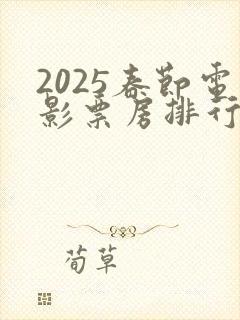 2025春節電
影票房排行
荀草